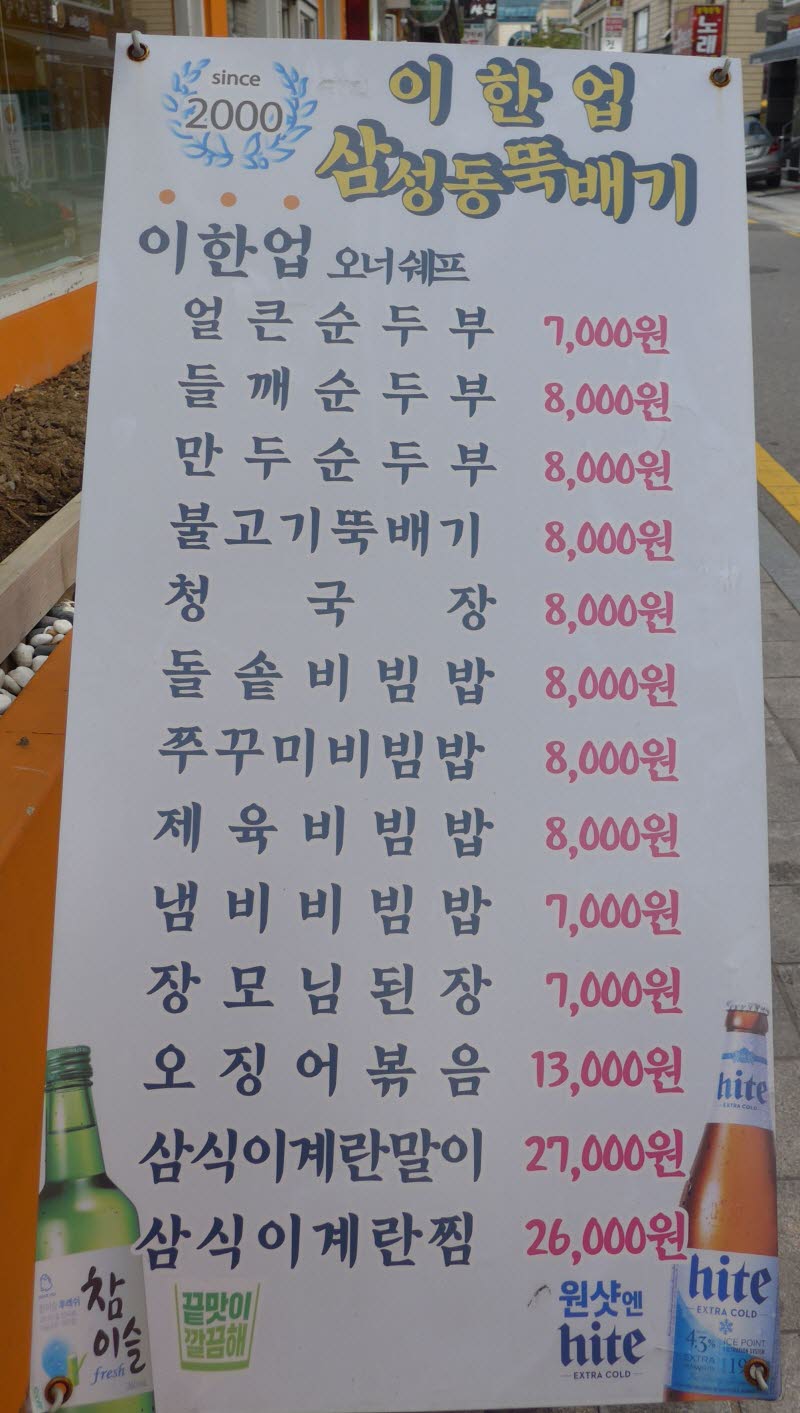 노래
since
2000
이한업
삼성동뚝배기
이한업 오너쉐프
얼큰순두부 7,000원
들깨순두부 8,000원
만두순두부 8,000원
불고기뚝배기 8,000원
청국장 8,000원
돌솥비빔밥 8,000원
쭈꾸미비빔밥 8,000원
제육비빔밥 8,000원
냄비비빔밥 7,000원
장모님된장 7,000원
오징어볶음 13,000원
삼식이계란말이 27,000원
삼식이계란찜 26,000원
참이슬
fresh
끝맛이
깔끔해
원샷엔
hite
EXTRA COLD
hite
EXTRA COLD
hite
EXTRA COLD
4.3%
ICE POINT
EXTRA